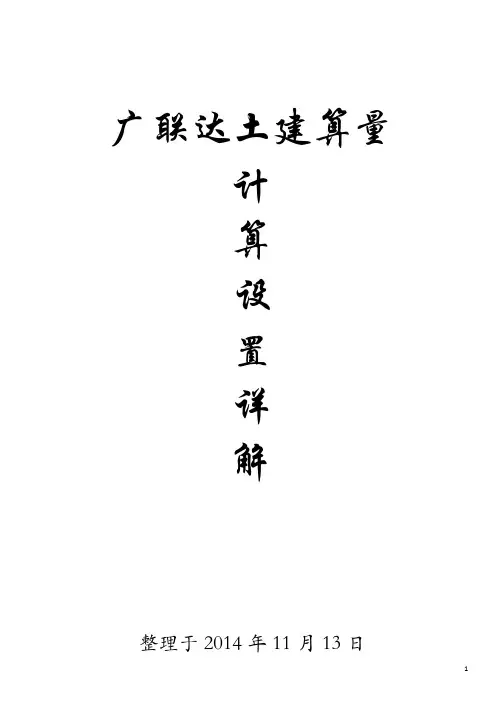 广联达土建算量
计
算
设
置
详
解
整理于 2014 年 11 月 13 日
1